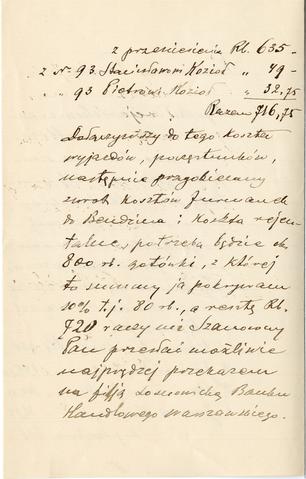 z przeniesienia Rb. 635 -
z Nr. 93. Stanisławowi Kozioł " 49 -
" 93 Piotrowi Kozioł " 32,75
Razem 716,75
Doliczywszy do tego koszta
wyjazdów, poczęstunków,
następnie przyobiecany
zwrot kosztów furmanek
do Bendzina i koszta rejen-
talne, potrzeba będzie ok.
800 rb. gotówki, z której
to summy ja pokrywam
10% t.j. 80 rb., a resztę Rb.
720 raczy mi Szanowny
Pan przesłać możliwie
najprędzej przekazem
na filją Sosnowicką Banku
Handlowego warszawskiego.